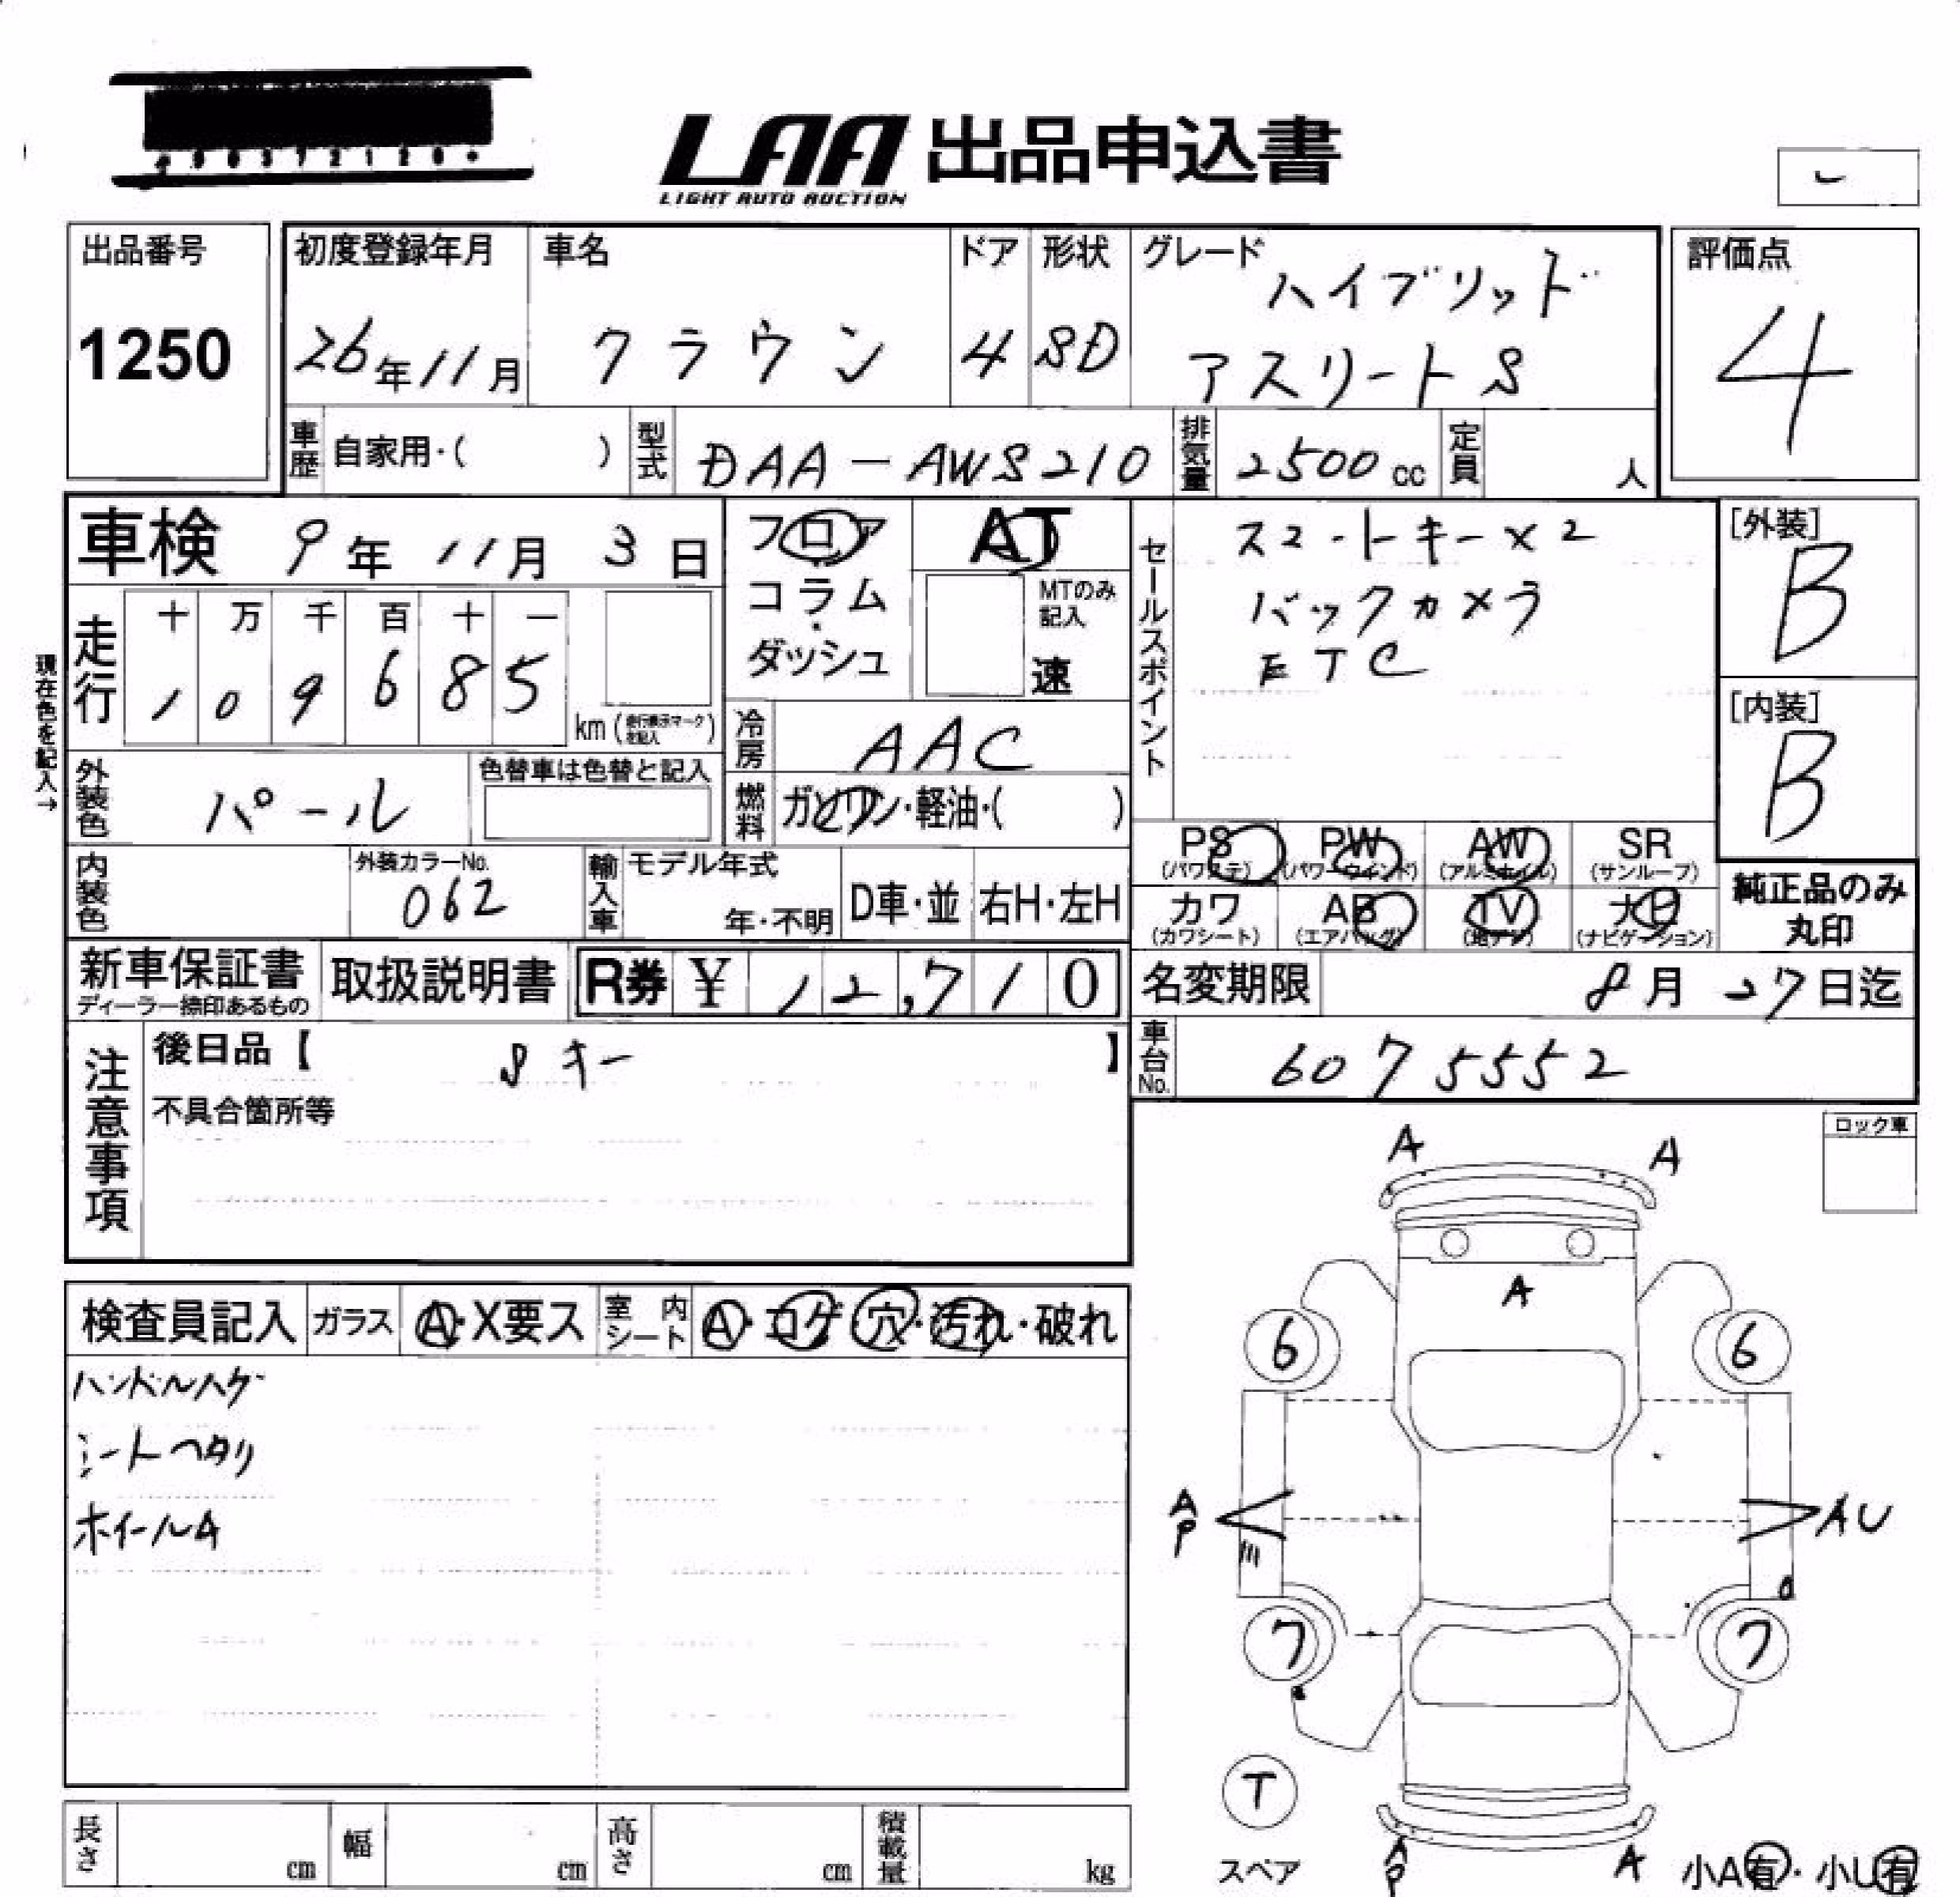 LAA 出品申込書
LIGHT AUTO AUCTION
出品番号
1250
初度登録年月
26年11月
車名
クラウン
ドア
4
形状
SD
グレード
ハイブリッド
アスリートS
評価点
4
車歴 自家用・( )
型式 DAA-AWS210
排気量 2500cc
定員 人
車検 9年11月3日
フロア
コラム
ダッシュ
AT
MTのみ記入
速
セールスポイント
スマートキー×2
バックカメラ
ETC
[外装]
B
[内装]
B
現在色を記入→
走行
十 万 千 百 十 一
1 0 9 6 8 5
km(走行表示マークを記入)
冷房 AAC
外装色 パール
色替車は色替と記入
燃料 ガソリン・軽油・( )
内装色
外装カラーNo.
062
輸入車
モデル年式
年・不明
D車・並
右H・左H
PS (パワステ)
PW (パワーウインド)
AW (アルミホイル)
SR (サンルーフ)
カワ (カワシート)
AB (エアバッグ)
TV (地デジ)
ナビ (ナビゲーション)
純正品のみ
丸印
新車保証書
ディーラー捺印あるもの
取扱説明書
R券 ¥ 12,710
名変期限 8月27日迄
車台No. 6075552
注意事項
後日品【 Sキー 】
不具合箇所等
ロック車
検査員記入
ガラス A・X要ス
室内シート A・コゲ・穴・汚れ・破れ
ハンドルハゲ
シートヘタリ
ホイールA
A A
A
6 6
A
P
AU
7 7
T
スペア
A
P
A
小A有・小U有
長さ cm
幅 cm
高さ cm
積載量 kg